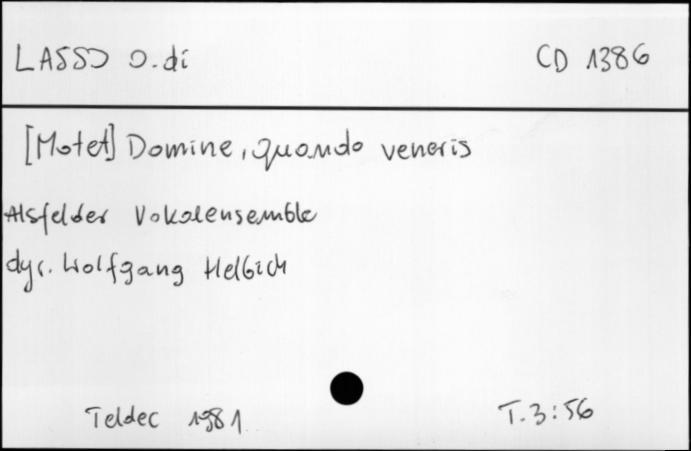 LASSO O. di CD 1386
[Motet] Domine, quando veneris
Alsfelder Vokalensemble
dyr. Wolfgang Helbich
Teldec 1981 T. 3:56